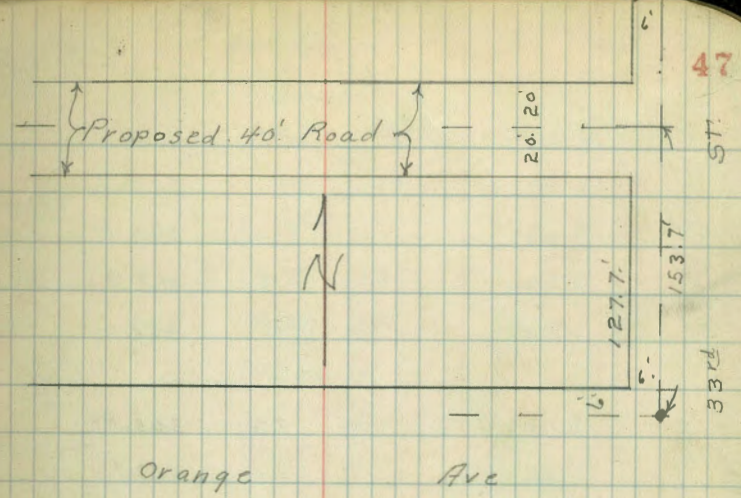 6'
47
Proposed 40' Road
20' 20'
ST.
N
153.7'
127.7'
6'
6'
33rd
Orange Ave